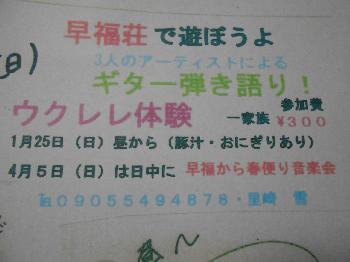 早福荘で遊ぼうよ
(日)
3人のアーティストによる
ギター弾き語り！
ウクレレ体験
参加費
一家族 ¥300
1月25日（日）昼から（豚汁・おにぎりあり）
4月5日（日）は日中に 早福から春便り音楽会
℡09055494878・里崎 雪